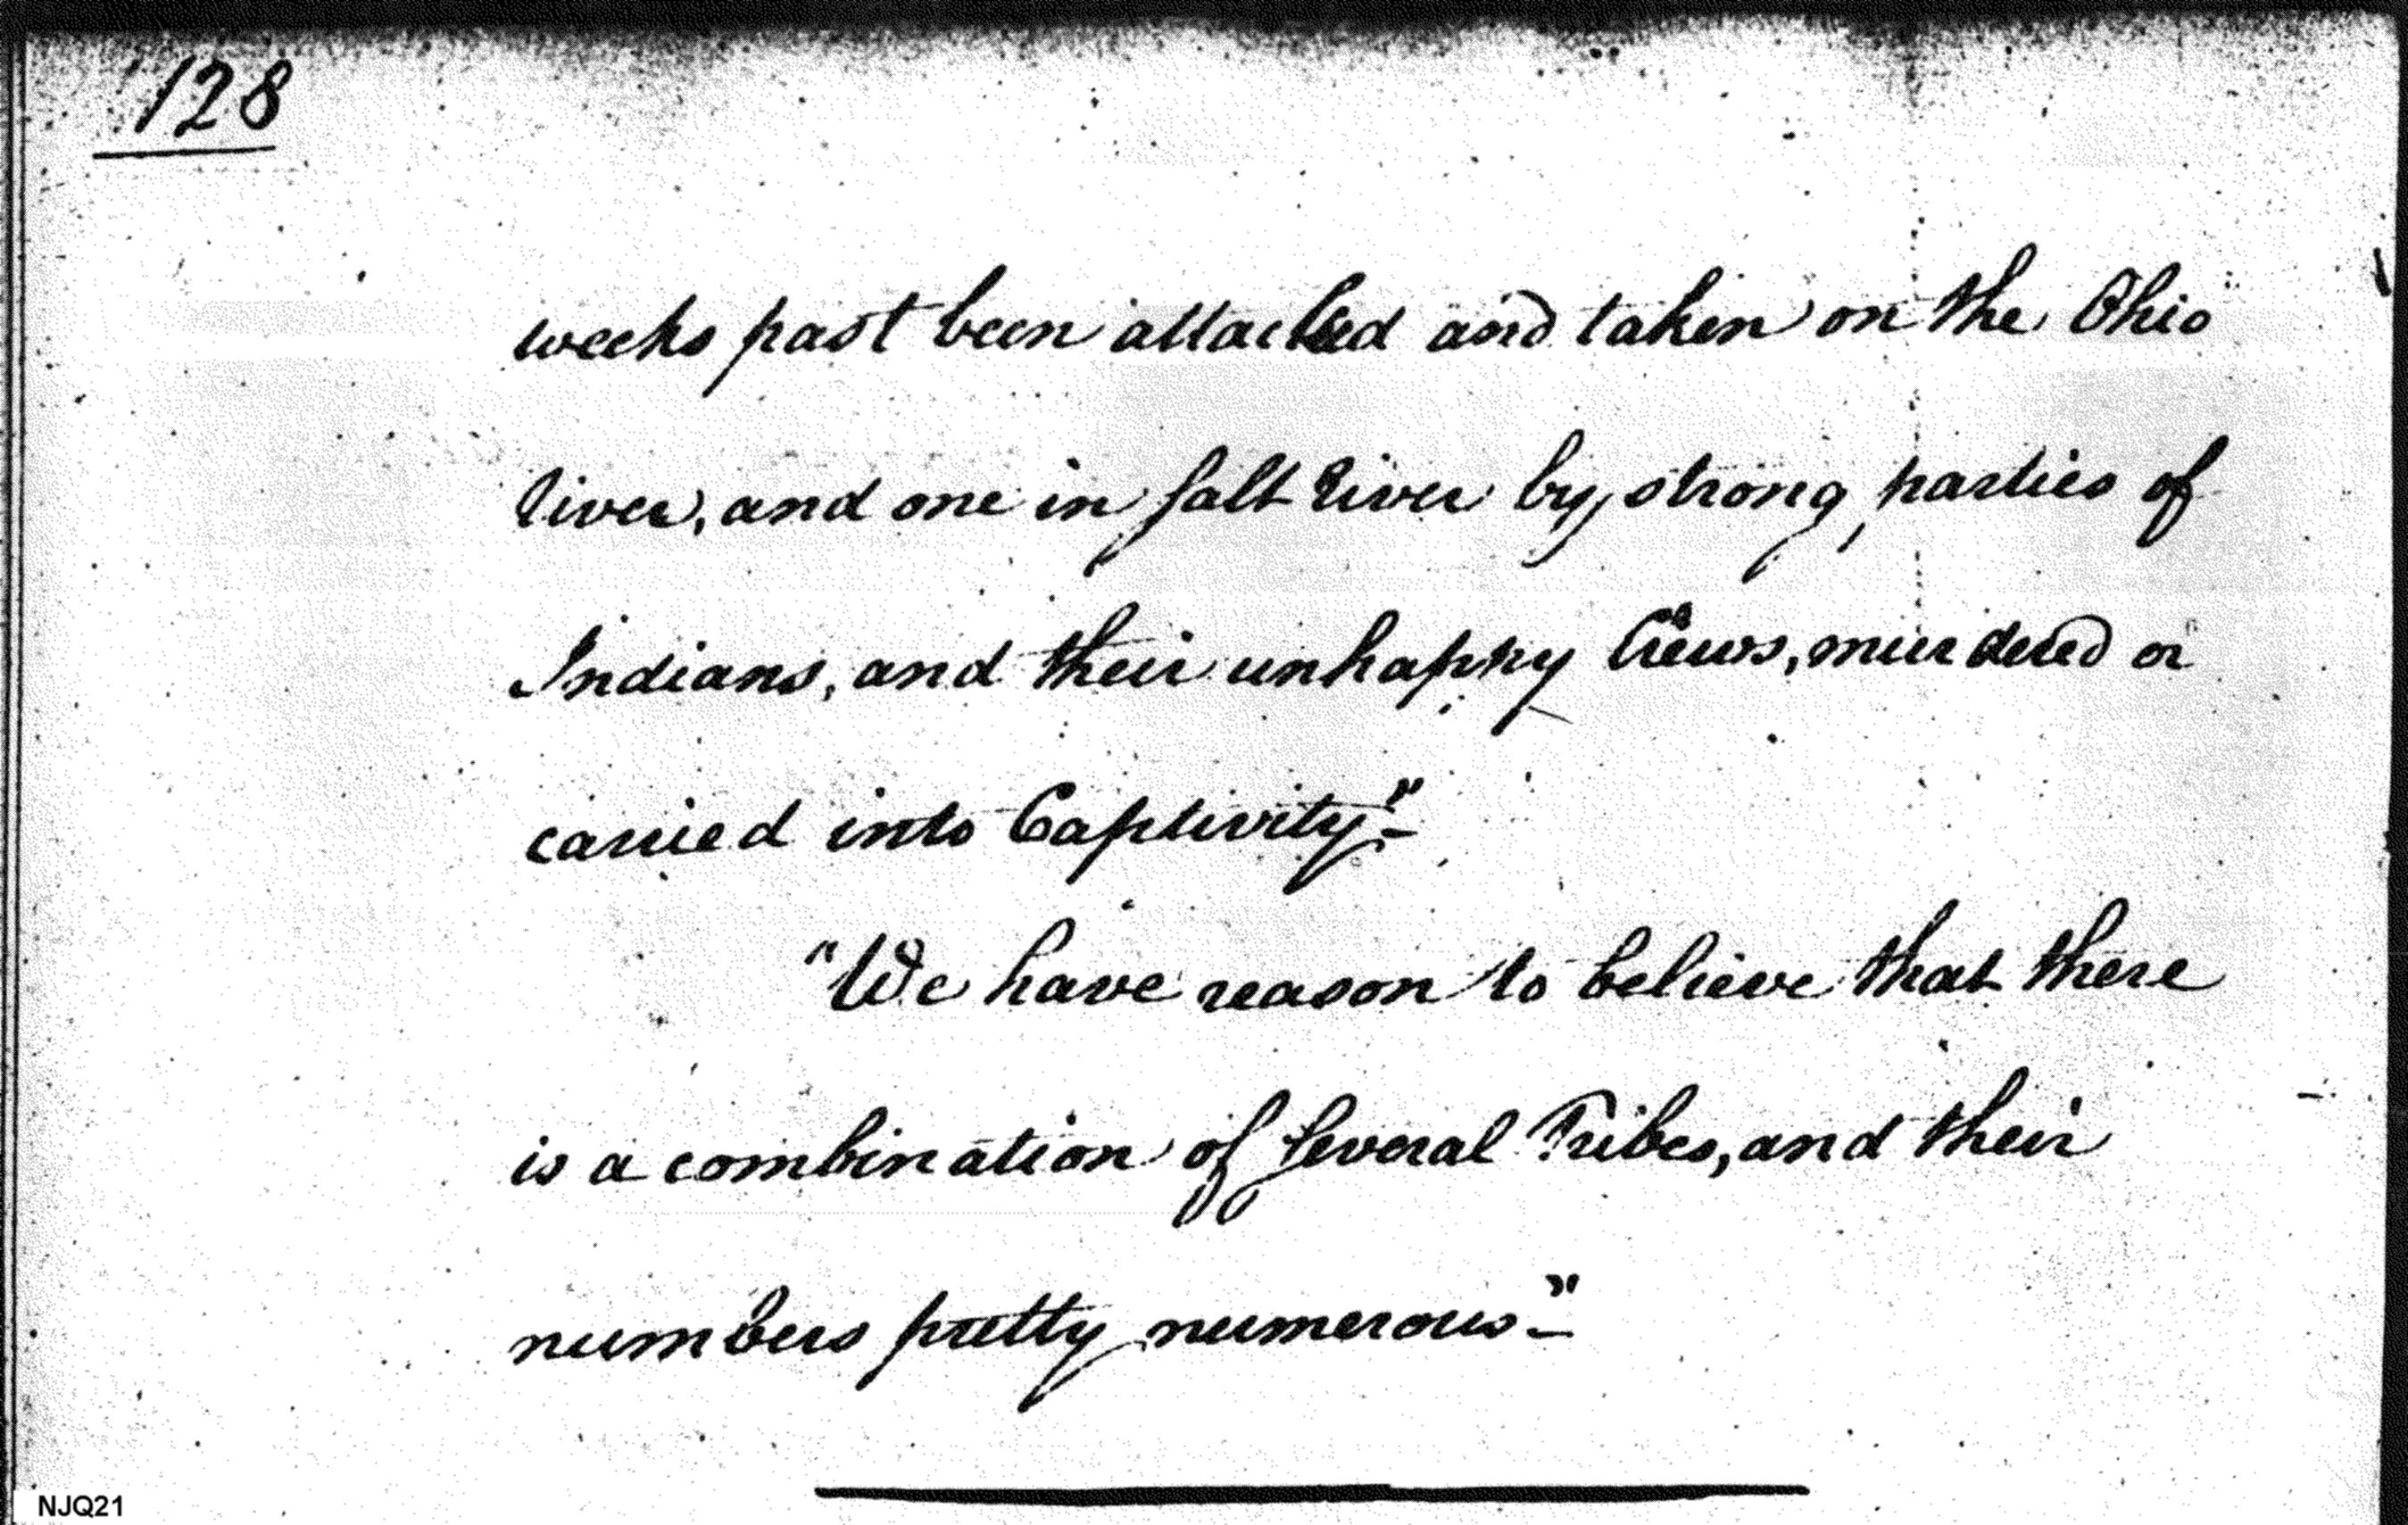 128
weeks past been attacked and taken on the Ohio
River, and one in Salt River by strong parties of
Indians, and their unhappy Crews, murdered or
carried into Captivity."–
"We have reason to believe that there
is a combination of Several Tribes, and their
numbers pretty numerous."–
NJQ21